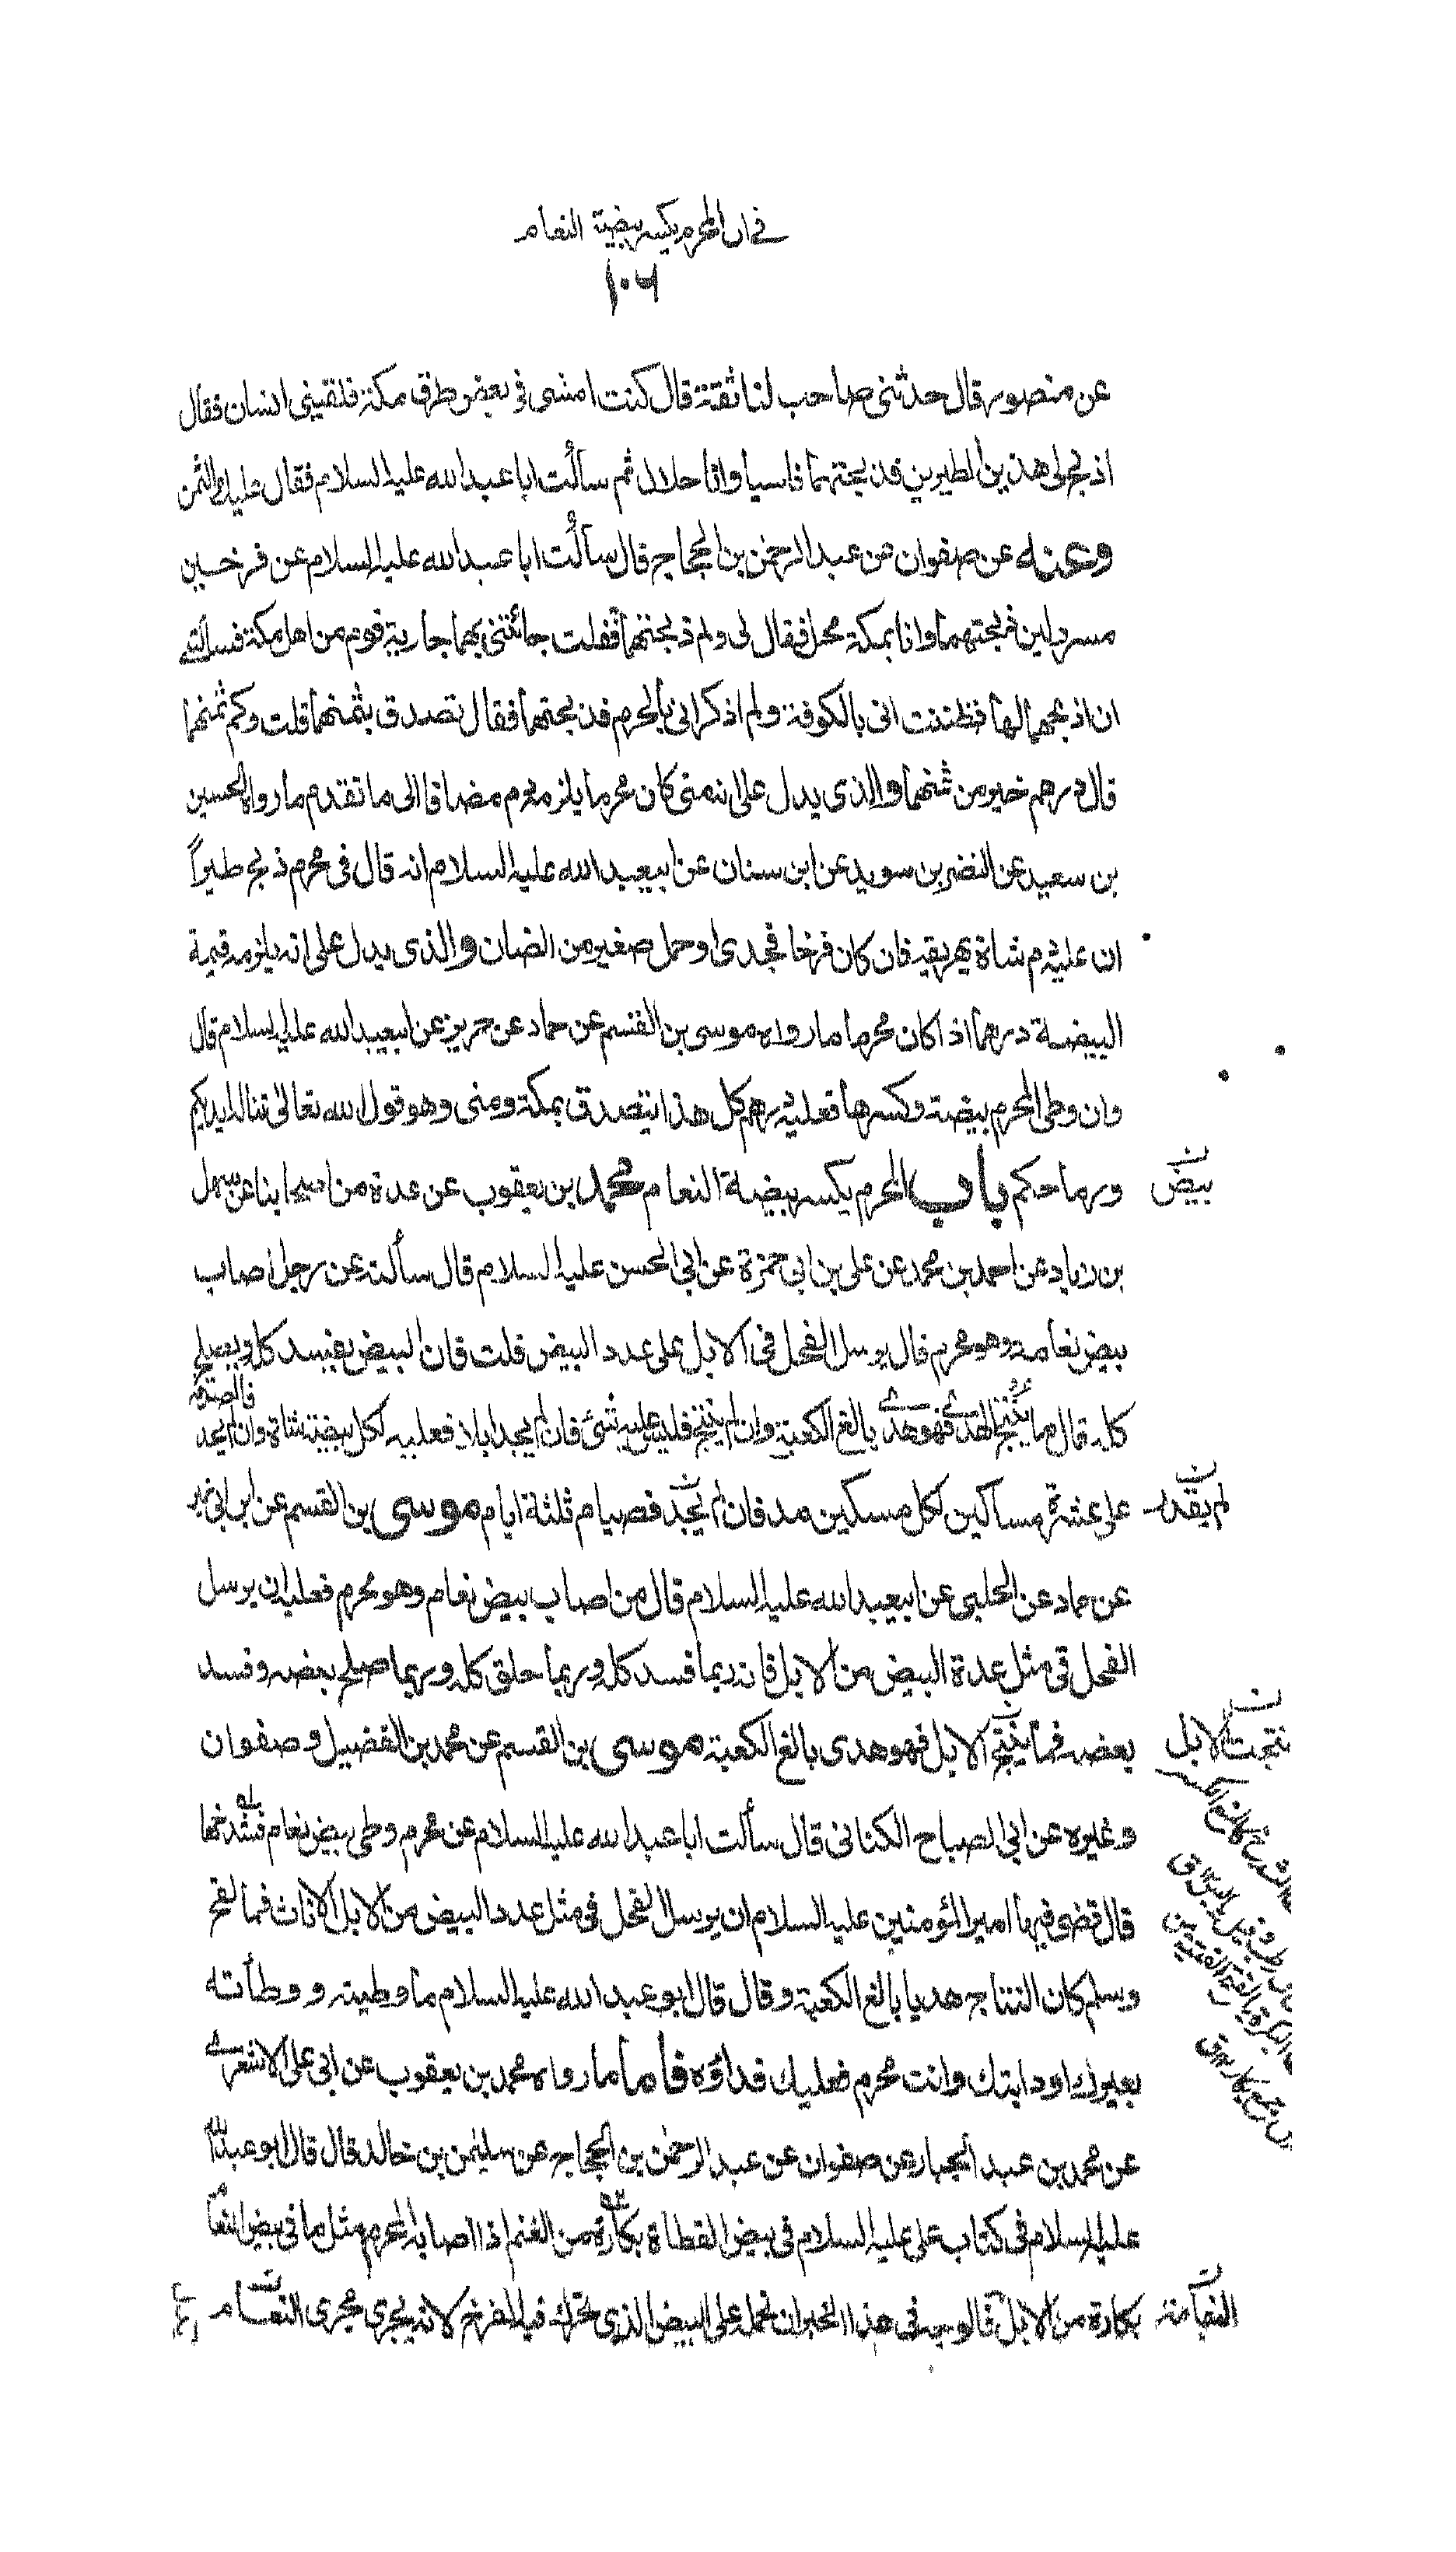 في ان المحرم يكسر بيضة النعام
١٠٦
عن منصور قال حدثنى صاحب لنا ثقة قال كنت امشى في بعض طرق مكة فلقينى انسان فقال
اذبح لى هذين الطيرين فذبحتهما ناسيا وانا حلال ثم سألت ابا عبد الله عليه السلام فقال عليك الثمن
وعنه عن صفوان عن عبد الرحمن بن الحجاج قال سألت ابا عبد الله عليه السلام عن فرخين
مسرولين ذبحتهما وانا بمكة محل فقال لى ولم ذبحتهما فقلت جائتنى بهما جارية قوم من اهل مكة فسألتنى
ان اذبحهما لها فظننت انى بالكوفة ولم اذكر انى بالحرم فذبحتهما فقال تصدق بثمنهما قلت وكم ثمنهما
قال درهم خير من ثمنهما والذى يدل على انه متى كان محرما يلزمه دم مضافا الى ما تقدم ما رواه الحسين
بن سعيد عن النضر بن سويد عن ابن سنان عن ابيعبد الله عليه السلام انه قال في محرم ذبح طيراً
ان عليه دم شاة يهريقه فان كان فرخا فجدى او حمل صغير من الضان والذى يدل على انه يلزمه قيمة
البيضة درهما اذا كان محرما ما رواه موسى بن القسم عن حماد عن حريز عن ابيعبد الله عليه السلام قال
وان وطى المحرم بيضة وكسرها فعليه درهم كل هذا يتصدق بمكة ومنى وهو قول الله تعالى تناله ايديكم
ورماحكم باب المحرم يكسر بيضة النعام محمد بن يعقوب عن عدة من اصحابنا عن سهل
بيض
بن زياد عن احمد بن محمد عن على بن ابى حمزة عن ابى الحسن عليه السلام قال سألته عن رجل اصاب
بيض نعامة وهو محرم قال يرسل الفحل فى الابل على عدد البيض قلت فان البيض يفسد كله ويصلح
كله قال ما ينتج الهدى فهو هدى بالغ الكعبة وان لم ينتج فليس عليه شئ فان لم يجد ابلا فعليه لكل بيضة شاة وان لم يجد فالصدقة
على عشرة مساكين لكل مسكين مد فان لم يجد فصيام ثلثة ايام موسى بن القسم عن ابن ابى عمير
لم يقدر
عن حماد عن الحلبى عن ابيعبد الله عليه السلام قال من اصاب بيض نعام وهو محرم فعليه ان يرسل
الفحل فى مثل عدة البيض من الابل فانه ربما فسد كله وربما خلق كله وربما صلح بعضه وفسد
بعضه فما ينتج الابل فهو هدى بالغ الكعبة موسى بن القسم عن محمد بن الفضيل وصفوان
نتجت الابل
وغيره عن ابى الصباح الكنانى قال سألت ابا عبد الله عليه السلام عن محرم وطى بيض نعام فشدخها
قال قضى فيها امير المؤمنين عليه السلام ان يرسل الفحل فى مثل عدد البيض من الابل الاناث فما لقح
وسلم كان النتاج هديا بالغ الكعبة وقال قال ابو عبد الله عليه السلام ما وطيته ووطأته
بعيرك او دابتك وانت محرم فعليك فداؤه فاما ما رواه محمد بن يعقوب عن ابى على الاشعرى
عن محمد بن عبد الجبار عن صفوان عن عبد الرحمن بن الحجاج عن سليمن بن خالد قال قال ابو عبد الله
عليه السلام فى كتاب على عليه السلام فى بيض القطاة بكارة من الغنم اذا اصابه المحرم مثل ما فى بيض النعام
بكارة من الابل فالوجه فى هذا الخبر ان نحمله على البيض الذى يتحرك فيه الفرخ لانه يجرى مجرى النعام
النعامة